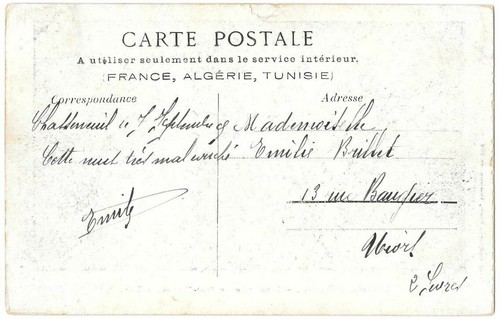 CARTE POSTALE
A utiliser seulement dans le service intérieur.
(FRANCE, ALGÉRIE, TUNISIE)
Correspondance
le 7 Septembre
Cette nuit très mal couché
Emile
Adresse
Mademoiselle
Emilie Brillet
13 rue
Niort
2 Sèvres